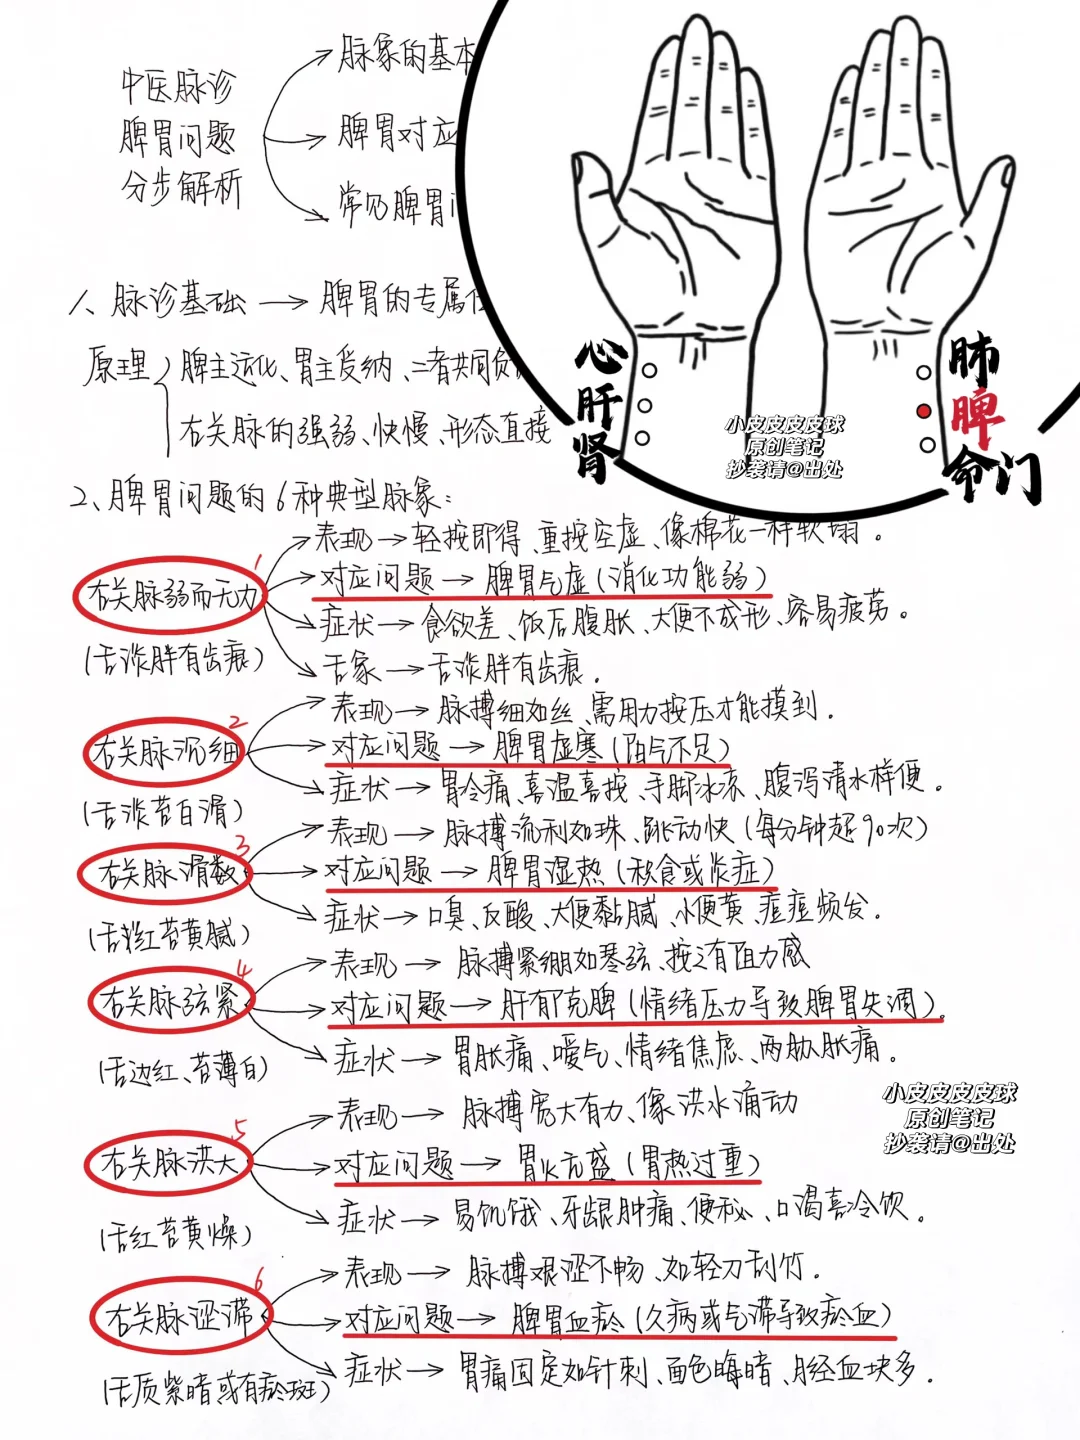 中医脉诊
脾胃问题
分步解析
脉象的基本
脾胃对应
常见脾胃
1、脉诊基础 → 脾胃的专属
原理
脾主运化、胃主受纳、二者共同负
右关脉的强弱、快慢、形态直接
心
肝
肾
肺
脾
命门
小皮皮皮皮球
原创笔记
抄袭请@出处
2、脾胃问题的6种典型脉象：
1
右关脉弱而无力
(舌淡胖有齿痕)
表现 → 轻按即得、重按空虚、像棉花一样软塌。
对应问题 → 脾胃气虚(消化功能弱)
症状 → 食欲差、饭后腹胀、大便不成形、容易疲劳。
舌象 → 舌淡胖有齿痕.
2
右关脉沉细
(舌淡苔白滑)
表现 → 脉搏细如丝、需用力按压才能摸到.
对应问题 → 脾胃虚寒(阳气不足)
症状 → 胃冷痛、喜温喜按、手脚冰凉、腹泻清水样便。
3
右关脉滑数
(舌红苔黄腻)
表现 → 脉搏流利如珠、跳动快(每分钟超90次)
对应问题 → 脾胃湿热(积食或炎症)
症状 → 口臭、反酸、大便黏腻、小便黄、痘痘频发.
4
右关脉弦紧
(舌边红、苔薄白)
表现 → 脉搏紧绷如琴弦、按之有阻力感
对应问题 → 肝郁克脾(情绪压力导致脾胃失调).
症状 → 胃胀痛、嗳气、情绪焦虑、两胁胀痛.
5
右关脉洪大
(舌红苔黄燥)
表现 → 脉搏宽大有力、像洪水涌动
对应问题 → 胃火亢盛(胃热过重)
症状 → 易饥饿、牙龈肿痛、便秘、口渴喜冷饮。
小皮皮皮皮球
原创笔记
抄袭请@出处
6
右关脉涩滞
(舌质紫暗或有瘀斑)
表现 → 脉搏艰涩不畅、如轻刀刮竹.
对应问题 → 脾胃血瘀(久病或气滞导致瘀血)
症状 → 胃痛固定如针刺、面色晦暗、月经血块多.